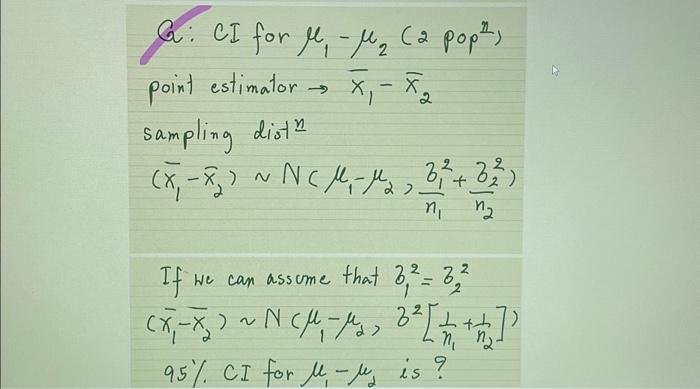 Q: CI for μ₁ - μ₂ (2 popⁿ)
point estimator → x̄₁ - x̄₂
sampling distⁿ
(x̄₁ - x̄₂) ~ N(μ₁ - μ₂, σ₁²/n₁ + σ₂²/n₂)
If we can assume that σ₁² = σ₂²
(x̄₁ - x̄₂) ~ N(μ₁ - μ₂, σ²[1/n₁ + 1/n₂])
95% CI for μ₁ - μ₂ is ?